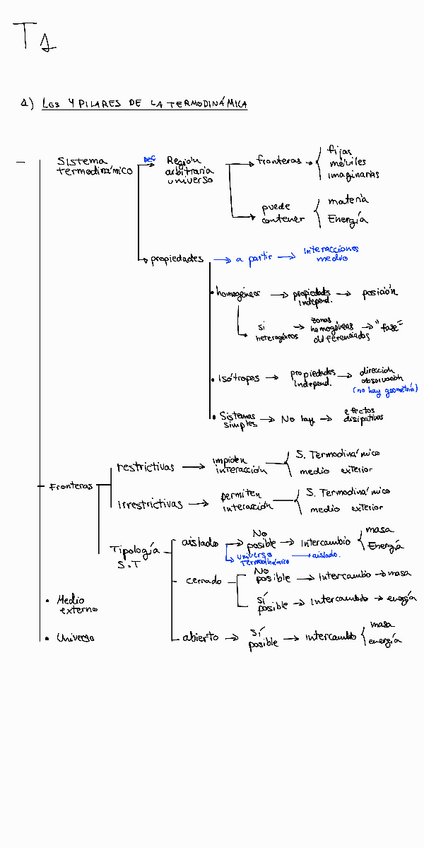 T1
1) LOS 4 PILARES DE LA TERMODINÁMICA
Sistema termodinámico DEF Región arbitraria universo
fronteras
fijas
móviles
imaginarias
puede contener
materia
Energía
propiedades a partir interacciones medio
homogéneos propiedades independ. posición
si heterogéneos zonas homogéneas diferenciadas "fase"
Isótropos propiedades independ. dirección observación
(no hay geometría)
Sistemas simples No hay efectos disipativos
Fronteras
restrictivas impiden interacción
S. Termodinámico
medio exterior
irrestrictivas permiten interacción
S. Termodinámico
medio exterior
Tipología S.T
aislado No posible Intercambio
masa
Energía
universo termodinámico aislado.
cerrado
No posible Intercambio masa
Sí posible Intercambio energía
abierto Sí posible intercambio
masa
energía
Medio externo
Universo